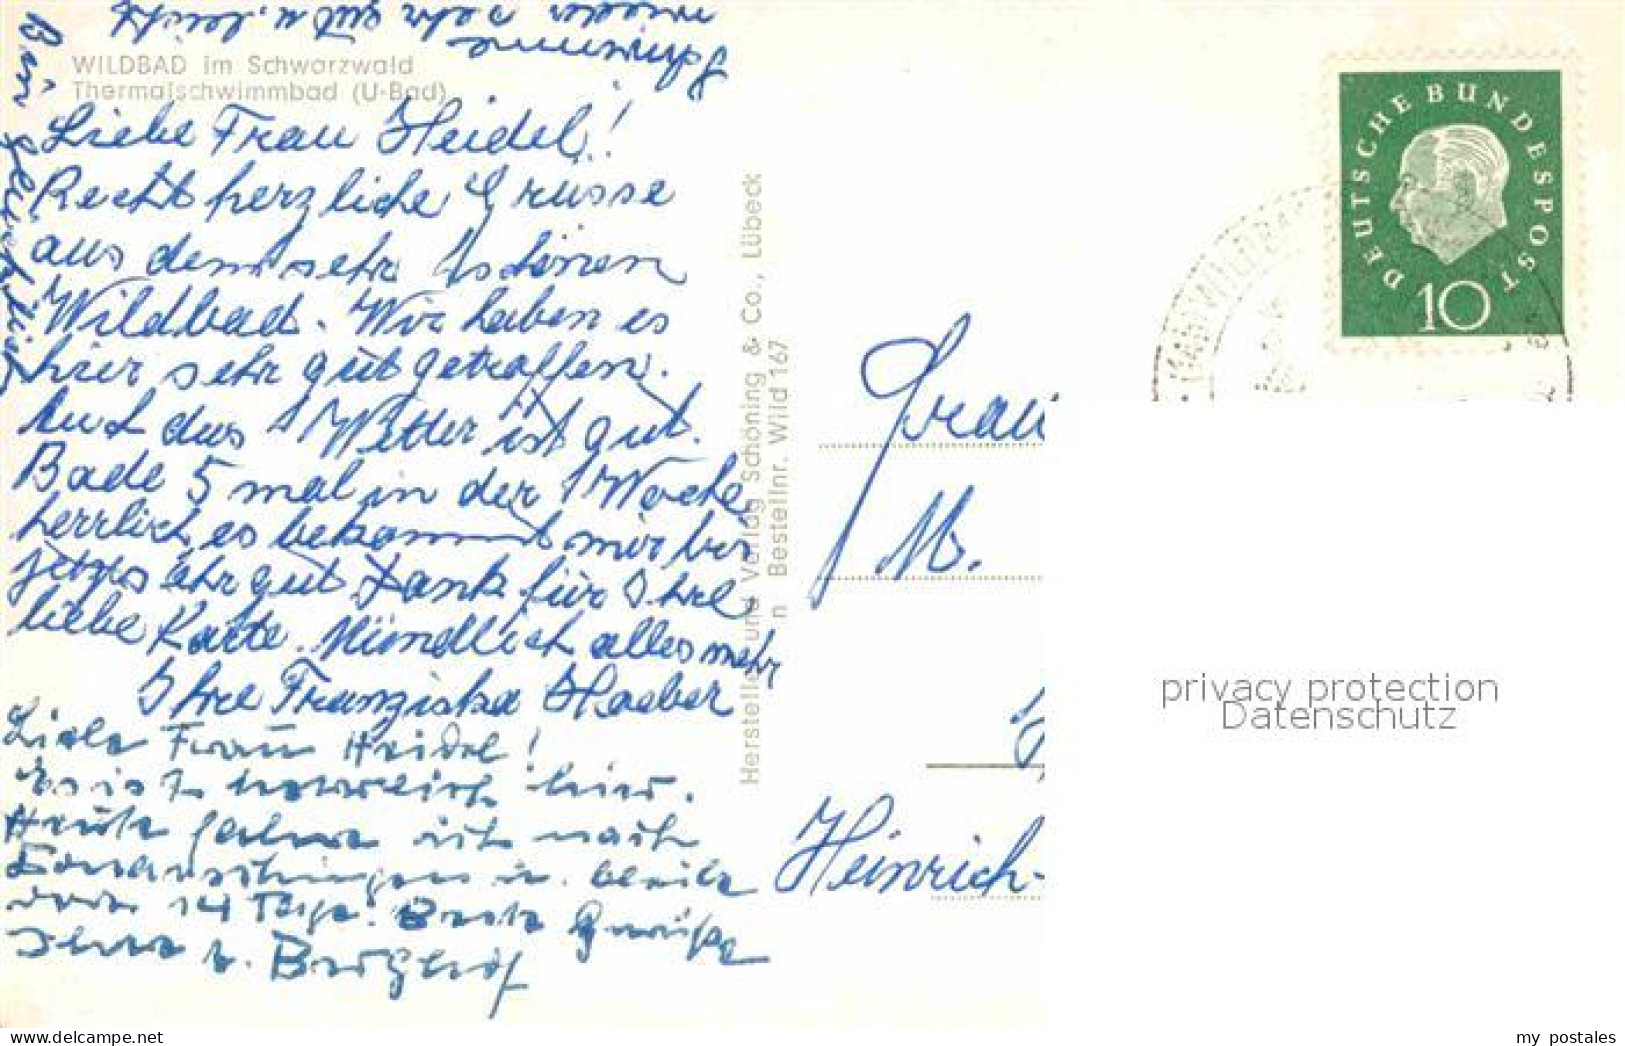 WILDBAD im Schwarzwald
Thermalschwimmbad (U-Bad)
Liebe Frau Heidel!
Recht herzliche Grüsse
aus dem sehr schönen
Wildbad. Wir haben es
hier sehr gut getroffen.
Auch das Wetter ist gut.
Bade 5 mal in der Woche
herrlich, es bekommt mir bis
jetzt sehr gut. Dank für Ihre
liebe Karte. Mündlich alles mehr
Ihre Franziska Haeber
Liebe Frau Heidel!
Es ist herrlich hier.
Heute fahre ich nach
Donaueschingen u. bleibe
dort 14 Tage. Beste Grüße
Ihre
Herstellung und Verlag Schöning & Co., Lübeck
n Bestellnr. Wild 167
DEUTSCHE BUNDESPOST
10
WILDBAD
Frau
M.
Heinrich-
privacy protection
Datenschutz
my postales